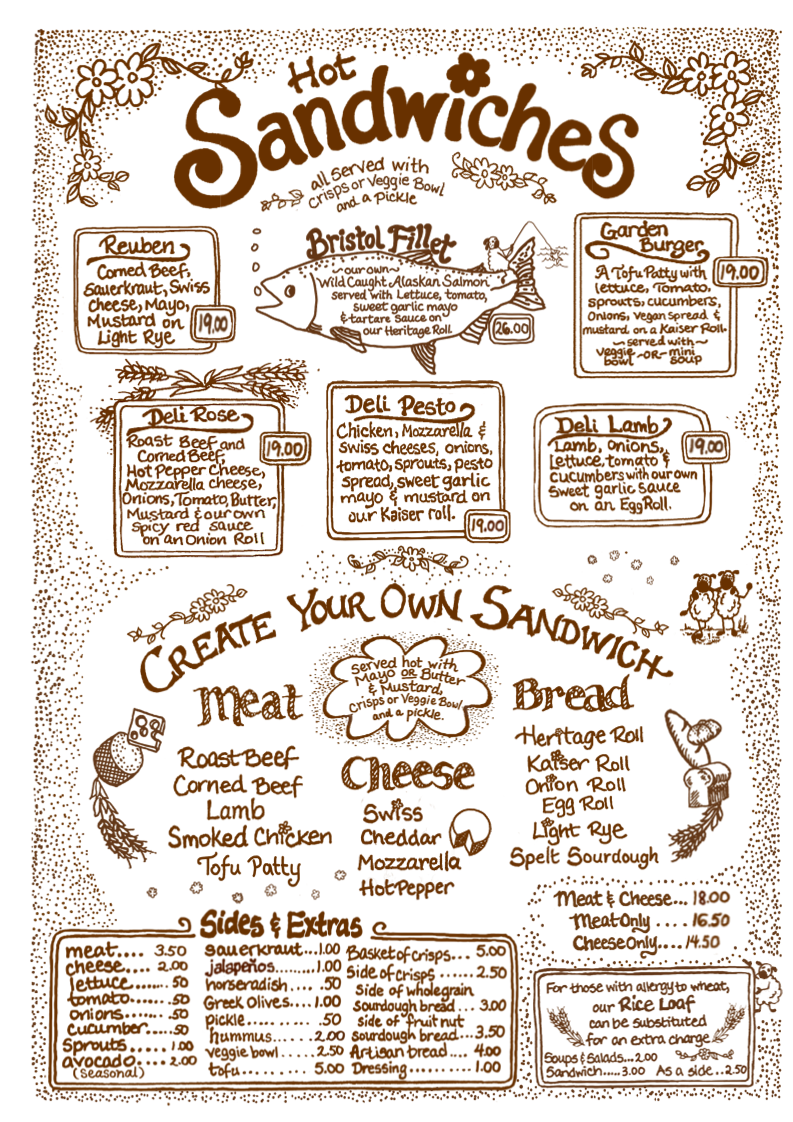 Hot
Sandwiches
all served with
Crisps or Veggie Bowl
and a Pickle
Reuben
Corned Beef,
Sauerkraut, Swiss
Cheese, Mayo,
Mustard on
Light Rye
19.00
Bristol Fillet
~our own~
Wild Caught Alaskan Salmon
served with Lettuce, tomato,
sweet garlic mayo
& tartare sauce on
our Heritage Roll.
26.00
Garden
Burger
A Tofu Patty with
lettuce, Tomato,
sprouts, cucumbers,
Onions, vegan spread &
mustard on a Kaiser Roll.
~served with~
veggie bowl -OR- mini soup
19.00
Deli Rose
Roast Beef and
Corned Beef,
Hot Pepper Cheese,
Mozzarella cheese,
Onions, Tomato, Butter,
Mustard & our own
spicy red sauce
on an Onion Roll
19.00
Deli Pesto
Chicken, Mozzarella &
Swiss cheeses, onions,
tomato, sprouts, pesto
spread, sweet garlic
mayo & mustard on
our Kaiser roll.
19.00
Deli Lamb
Lamb, onions,
Lettuce, tomato &
cucumbers with our own
sweet garlic sauce
on an Egg Roll.
19.00
CREATE YOUR OWN SANDWICH
served hot with
Mayo OR Butter
& Mustard,
Crisps or Veggie Bowl
and a pickle.
Meat
Roast Beef
Corned Beef
Lamb
Smoked Chicken
Tofu Patty
Cheese
Swiss
Cheddar
Mozzarella
Hot Pepper
Bread
Heritage Roll
Kaiser Roll
Onion Roll
Egg Roll
Light Rye
Spelt Sourdough
Meat & Cheese... 18.00
Meat Only .... 16.50
Cheese Only.... 14.50
Sides & Extras
meat.... 3.50
cheese.... 2.00
lettuce...... .50
tomato...... .50
onions...... .50
cucumber..... .50
sprouts.... 1.00
avocado.... 2.00
(seasonal)
sauerkraut...1.00
jalapeños........1.00
horseradish.... .50
Greek Olives....1.00
pickle......... .50
hummus...... 2.00
veggie bowl..... 2.50
tofu........ 5.00
Basket of crisps... 5.00
Side of crisps ...... 2.50
side of wholegrain
sourdough bread... 3.00
side of fruit nut
sourdough bread...3.50
Artisan bread.... 4.00
Dressing.......... 1.00
For those with allergy to wheat,
our Rice Loaf
can be substituted
for an extra charge
Soups & Salads...2.00
Sandwich.....3.00 As a side..2.50